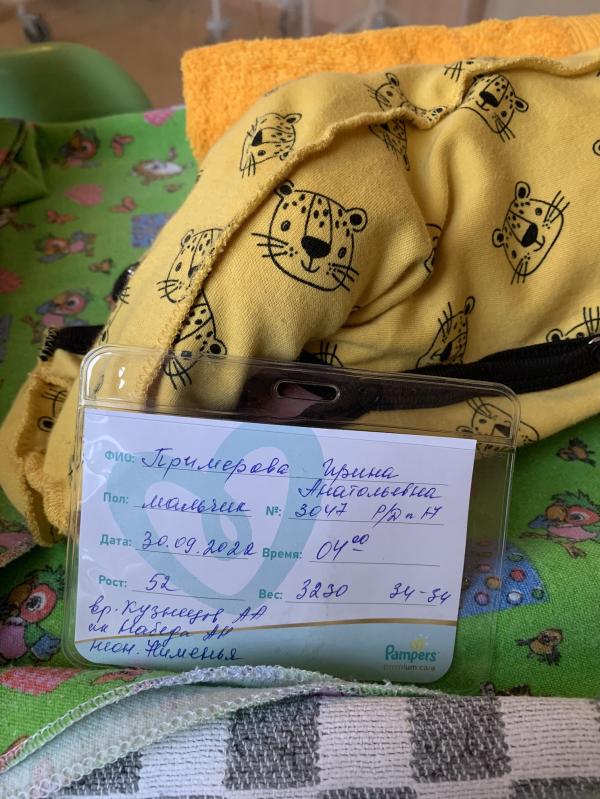 ФИО: Примерова Ирина
Анатольевна
Пол: мальчик №: 3047 Р/Д п Н
Дата: 30.09.2022 Время: 04⁰⁰
Рост: 52 Вес: 3230 34-34
вр. Кузнецов АА
Набеда
неон.
Pampers
premium care